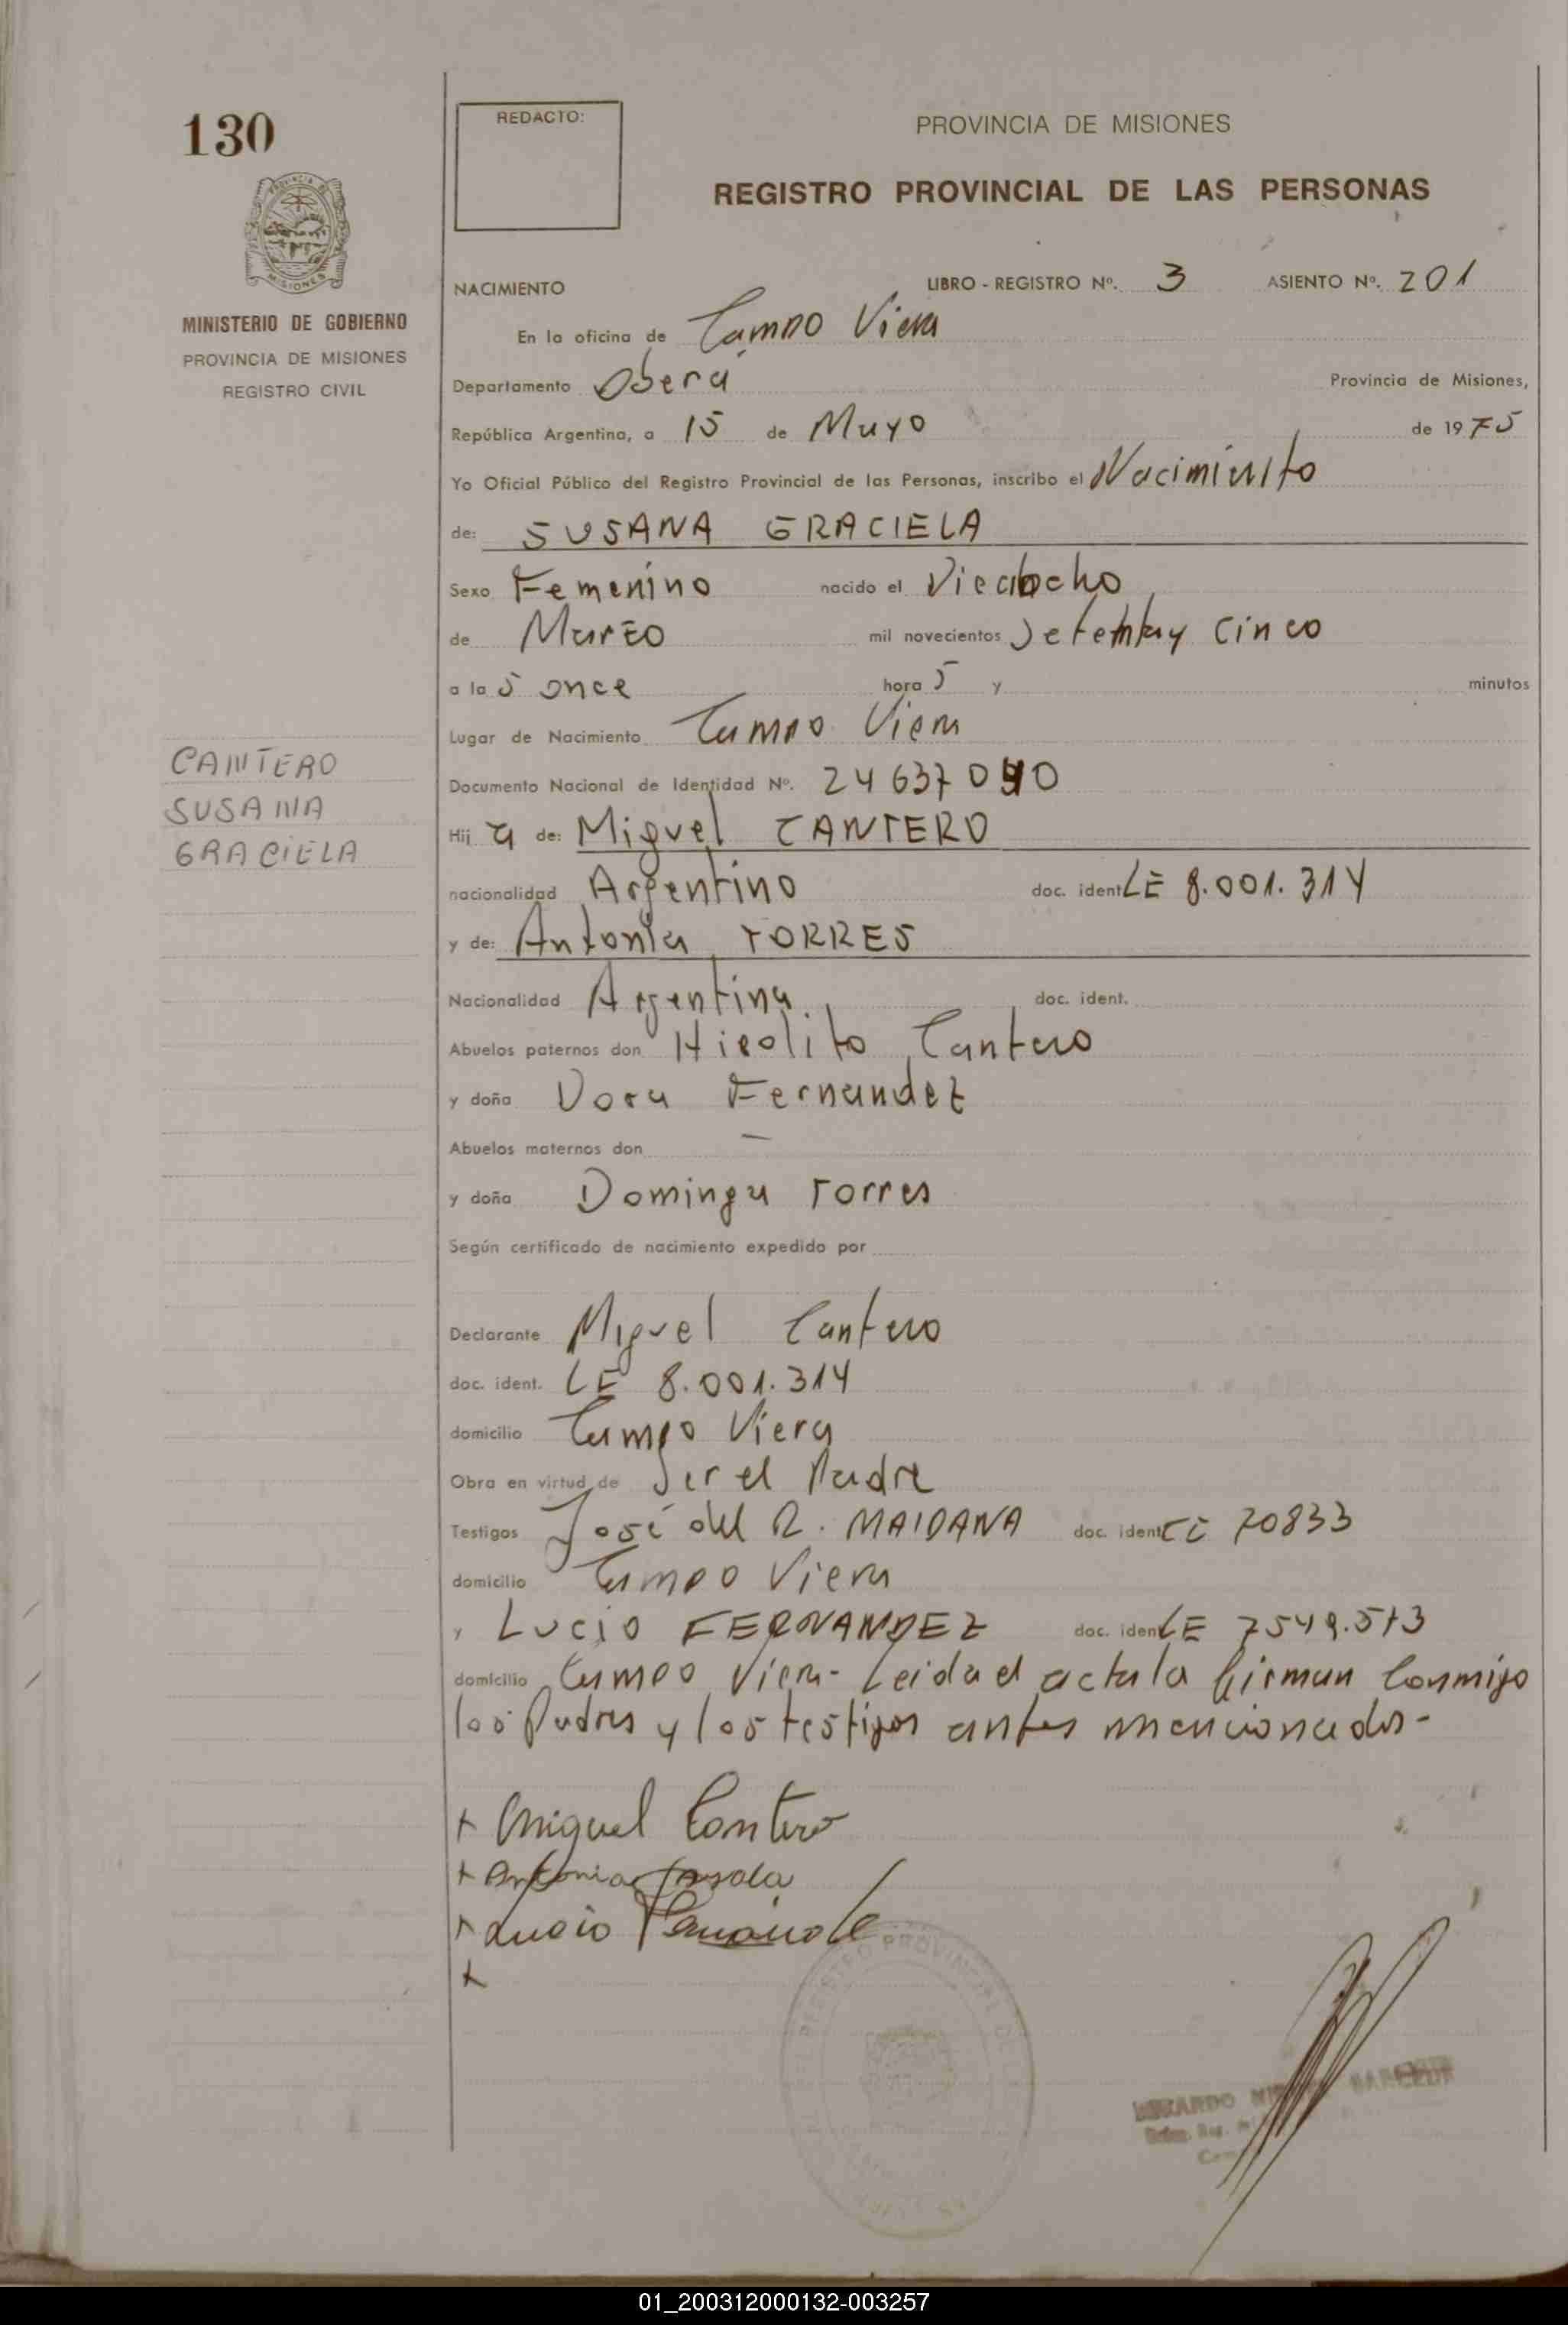 130
REDACTO:
PROVINCIA DE MISIONES
REGISTRO PROVINCIAL DE LAS PERSONAS
MINISTERIO DE GOBIERNO
PROVINCIA DE MISIONES
REGISTRO CIVIL
NACIMIENTO LIBRO - REGISTRO Nº. 3 ASIENTO Nº. 201
En la oficina de Campo Viera
Departamento Oberá Provincia de Misiones,
República Argentina, a 15 de Mayo de 1975
Yo Oficial Público del Registro Provincial de las Personas, inscribo el Nacimiento
de: SUSANA GRACIELA
Sexo Femenino nacido el Dieciocho
de Marzo mil novecientos Setenta y Cinco
a la s once hora s y minutos
Lugar de Nacimiento Campo Viera
CANTERO
SUSANA
GRACIELA
Documento Nacional de Identidad Nº. 24 637 090
Hij a de: Miguel CANTERO
nacionalidad Argentino doc. ident LE 8.001.314
y de: Antonia TORRES
Nacionalidad Argentina doc. ident.
Abuelos paternos don Hipolito Cantero
y doña Dora Fernandez
Abuelos maternos don —
y doña Dominga Torres
Según certificado de nacimiento expedido por
Declarante Miguel Cantero
doc. ident. LE 8.001.314
domicilio Campo Viera
Obra en virtud de Ser el Padre
Testigos José del R. MAIDANA doc. ident CE 70833
domicilio Campo Viera
y LUCIO FERNANDEZ doc. iden LE 7549.573
domicilio Campo Viera- Leida el acta la firman Conmigo
los Padres y los testigos antes mencionados-
+ Miguel Cantero
+ Antonia
+ Lucio
+
01_200312000132-003257